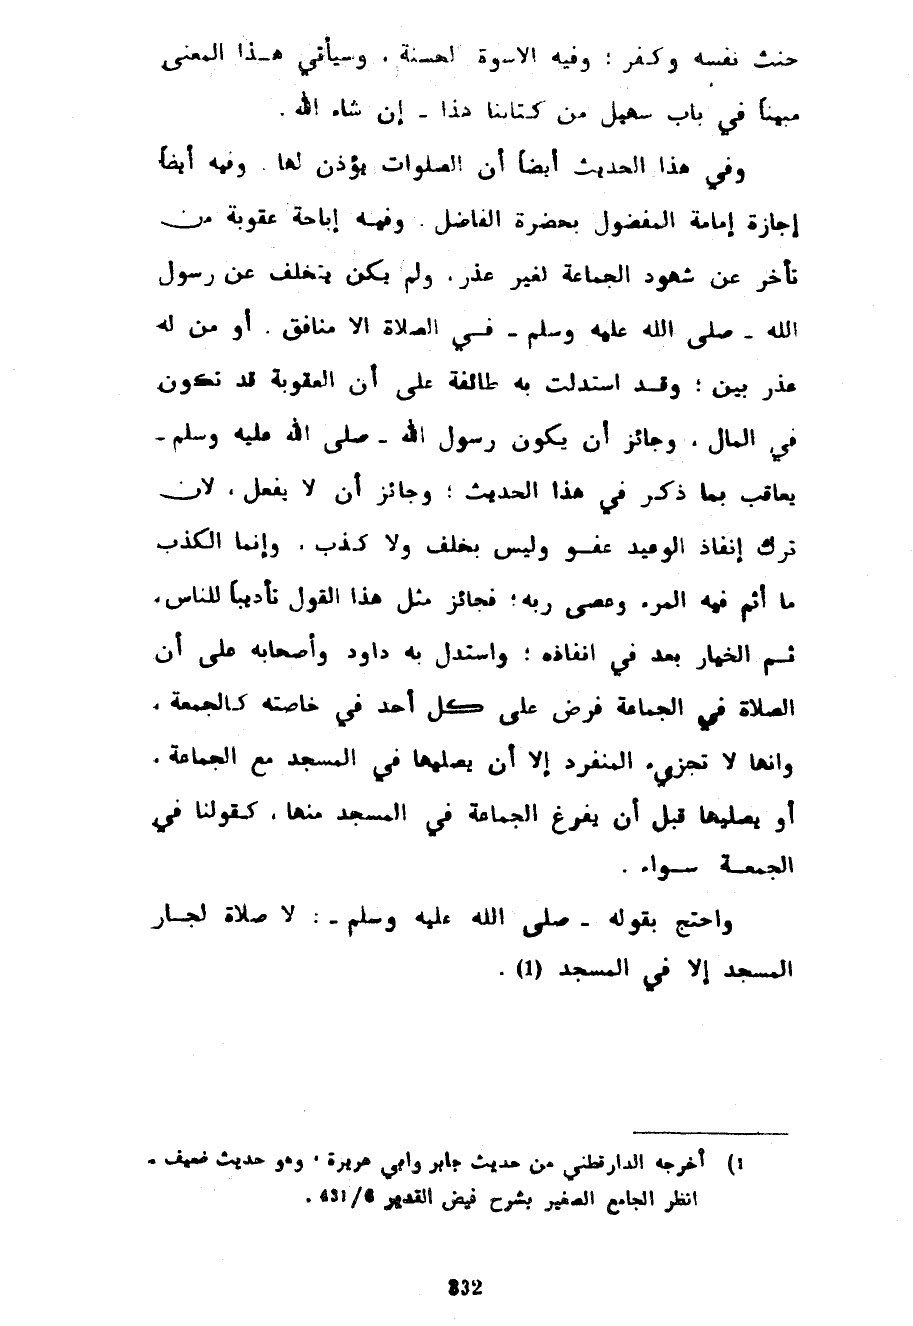 حنث نفسه وكفر ؛ وفيه الاسوة الحسنة ، وسيأتي هـذا المعنى
مبيناً في باب سهيل من كتابنا هذا ـ إن شاء الله .
وفي هذا الحديث أيضاً أن الصلوات يؤذن لها . وفيه أيضاً
إجازة إمامة المفضول بحضرة الفاضل . وفيـه إباحة عقوبة من
تأخر عن شهود الجماعة لغير عذر ، ولم يكن يتخلف عن رسول
الله ـ صلى الله عليه وسلم ـ فـي الصلاة الا منافق . أو من له
عذر بين ؛ وقـد استدلت به طائفة على أن العقوبة قد تكون
في المال ، وجائز أن يكون رسول الله ـ صلى الله عليه وسلم ـ
يعاقب بما ذكر في هذا الحديث ؛ وجائز أن لا يفعل ، لان
ترك إنفاذ الوعيد عفـو وليس بخلف ولا كـذب ، وإنما الكذب
ما أثم فيه المرء وعصى ربه ؛ فجائز مثل هذا القول تأديباً للناس ،
ثـم الخيار بعد في انفاذه ؛ واستدل به داود وأصحابه على أن
الصلاة في الجماعة فرض على كل أحد في خاصته كالجمعة ،
وانها لا تجزيء المنفرد إلا أن يصليها في المسجد مع الجماعة .
أو يصليها قبل أن يفرغ الجماعة في المسجد منها ، كـقولنا في
الجمعـة سـواء .
واحتج بقوله ـ صلى الله عليه وسلم ـ : لا صلاة لجـار
المسجد إلا في المسجد (1) .
1) أخرجه الدارقطني من حديث جابر وابي هريرة ، وهو حديث ضعيف ـ
انظر الجامع الصغير بشرح فيض القدير 6/431 .
332